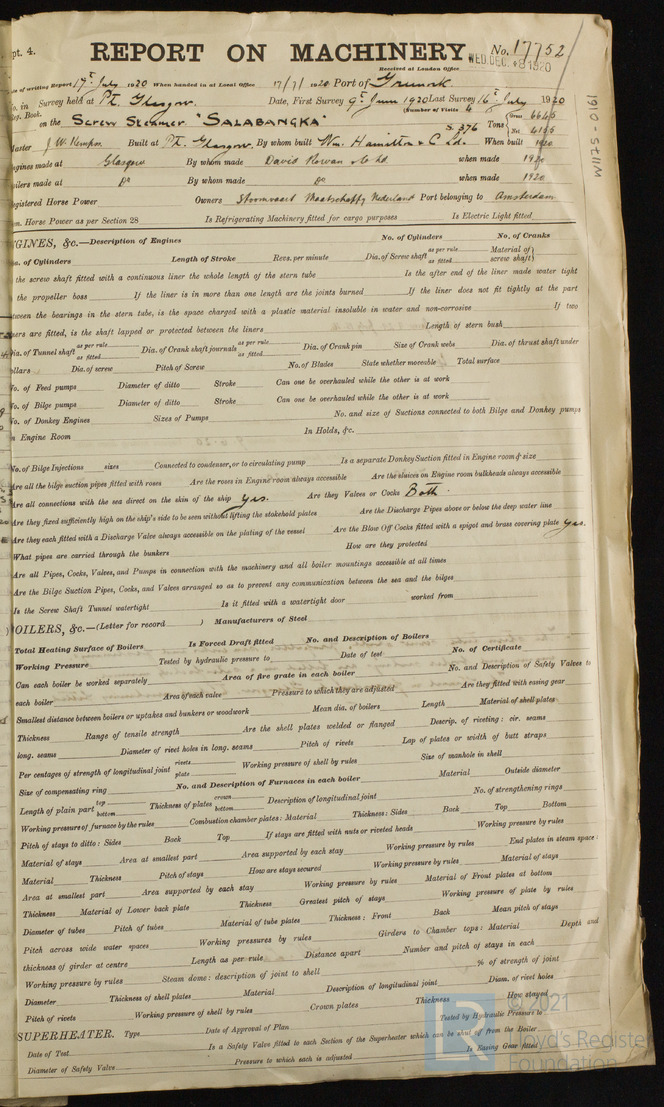 pt. 4.
REPORT ON MACHINERY
No. 17752
Received at London Office
WED. DEC. 8 1920
W1175-0161
Date of writing Report 17th July 1920 When handed in at Local Office 17/7/1920 Port of Greenock
No. in Survey held at Pt. Glasgow. Date, First Survey 9th June 1920 Last Survey 16th July 1920
Reg. Book. (Number of Visits 4
on the Screw Steamer "SALABANGKA" Tons Gross 6646 Net 4105
Master J. W. Kempen Built at Pt. Glasgow. By whom built Wm. Hamilton & Co. Ld. When built 1920
Engines made at Glasgow By whom made David Rowan & Co. Ld. when made 1920
Boilers made at Do By whom made Do when made 1920
Registered Horse Power Owners Stoomvaart Maatschappy Nederland Port belonging to Amsterdam
Nom. Horse Power as per Section 28 Is Refrigerating Machinery fitted for cargo purposes Is Electric Light fitted
ENGINES, &c.—Description of Engines No. of Cylinders No. of Cranks
No. of Cylinders Length of Stroke Revs. per minute Dia. of Screw shaft as per rule as fitted Material of screw shaft}
the screw shaft fitted with a continuous liner the whole length of the stern tube Is the after end of the liner made water tight
the propeller boss If the liner is in more than one length are the joints burned If the liner does not fit tightly at the part
between the bearings in the stern tube, is the space charged with a plastic material insoluble in water and non-corrosive If two
liners are fitted, is the shaft lapped or protected between the liners Length of stern bush
Dia. of Tunnel shaft as per rule as fitted Dia. of Crank shaft journals as per rule as fitted Dia. of Crank pin Size of Crank webs Dia. of thrust shaft under
collars Dia. of screw Pitch of Screw No. of Blades State whether moveable Total surface
No. of Feed pumps Diameter of ditto Stroke Can one be overhauled while the other is at work
No. of Bilge pumps Diameter of ditto Stroke Can one be overhauled while the other is at work
No. of Donkey Engines Sizes of Pumps No. and size of Suctions connected to both Bilge and Donkey pumps
In Engine Room In Holds, &c.
No. of Bilge Injections sizes Connected to condenser, or to circulating pump Is a separate Donkey Suction fitted in Engine room & size
Are all the bilge suction pipes fitted with roses Are the roses in Engine room always accessible Are the sluices on Engine room bulkheads always accessible
Are all connections with the sea direct on the skin of the ship yes. Are they Valves or Cocks Both.
Are they fixed sufficiently high on the ship's side to be seen without lifting the stokehold plates Are the Discharge Pipes above or below the deep water line
Are they each fitted with a Discharge Valve always accessible on the plating of the vessel Are the Blow Off Cocks fitted with a spigot and brass covering plate yes.
What pipes are carried through the bunkers How are they protected
Are all Pipes, Cocks, Valves, and Pumps in connection with the machinery and all boiler mountings accessible at all times
Are the Bilge Suction Pipes, Cocks, and Valves arranged so as to prevent any communication between the sea and the bilges
Is the Screw Shaft Tunnel watertight Is it fitted with a watertight door worked from
BOILERS, &c.—(Letter for record ) Manufacturers of Steel
Total Heating Surface of Boilers Is Forced Draft fitted No. and Description of Boilers
Working Pressure Tested by hydraulic pressure to Date of test No. of Certificate
Can each boiler be worked separately Area of fire grate in each boiler No. and Description of Safety Valves to
each boiler Area of each valve Pressure to which they are adjusted Are they fitted with easing gear
Smallest distance between boilers or uptakes and bunkers or woodwork Mean dia. of boilers Length Material of shell plates
Thickness Range of tensile strength Are the shell plates welded or flanged Descrip. of riveting: cir. seams
long. seams Diameter of rivet holes in long. seams Pitch of rivets Lap of plates or width of butt straps
Per centages of strength of longitudinal joint rivets plate Working pressure of shell by rules Size of manhole in shell
Size of compensating ring No. and Description of Furnaces in each boiler Material Outside diameter
Length of plain part top bottom Thickness of plates crown bottom Description of longitudinal joint No. of strengthening rings
Working pressure of furnace by the rules Combustion chamber plates: Material Thickness: Sides Back Top Bottom
Pitch of stays to ditto: Sides Back Top If stays are fitted with nuts or riveted heads Working pressure by rules
Material of stays Area at smallest part Area supported by each stay Working pressure by rules End plates in steam space:
Material Thickness Pitch of stays How are stays secured Working pressure by rules Material of stays
Area at smallest part Area supported by each stay Working pressure by rules Material of Front plates at bottom
Thickness Material of Lower back plate Thickness Greatest pitch of stays Working pressure of plate by rules
Diameter of tubes Pitch of tubes Material of tube plates Thickness: Front Back Mean pitch of stays
Pitch across wide water spaces Working pressures by rules Girders to Chamber tops: Material Depth and
thickness of girder at centre Length as per rule Distance apart Number and pitch of stays in each
Working pressure by rules Steam dome: description of joint to shell % of strength of joint
Diameter Thickness of shell plates Material Description of longitudinal joint Diam. of rivet holes
Pitch of rivets Working pressure of shell by rules Crown plates Thickness How stayed
SUPERHEATER. Type Date of Approval of Plan Tested by Hydraulic Pressure to
Date of Test Is a Safety Valve fitted to each Section of the Superheater which can be shut off from the Boiler
Diameter of Safety Valve Pressure to which each is adjusted Is Easing Gear fitted
© 2021
Lloyd's Register
Foundation